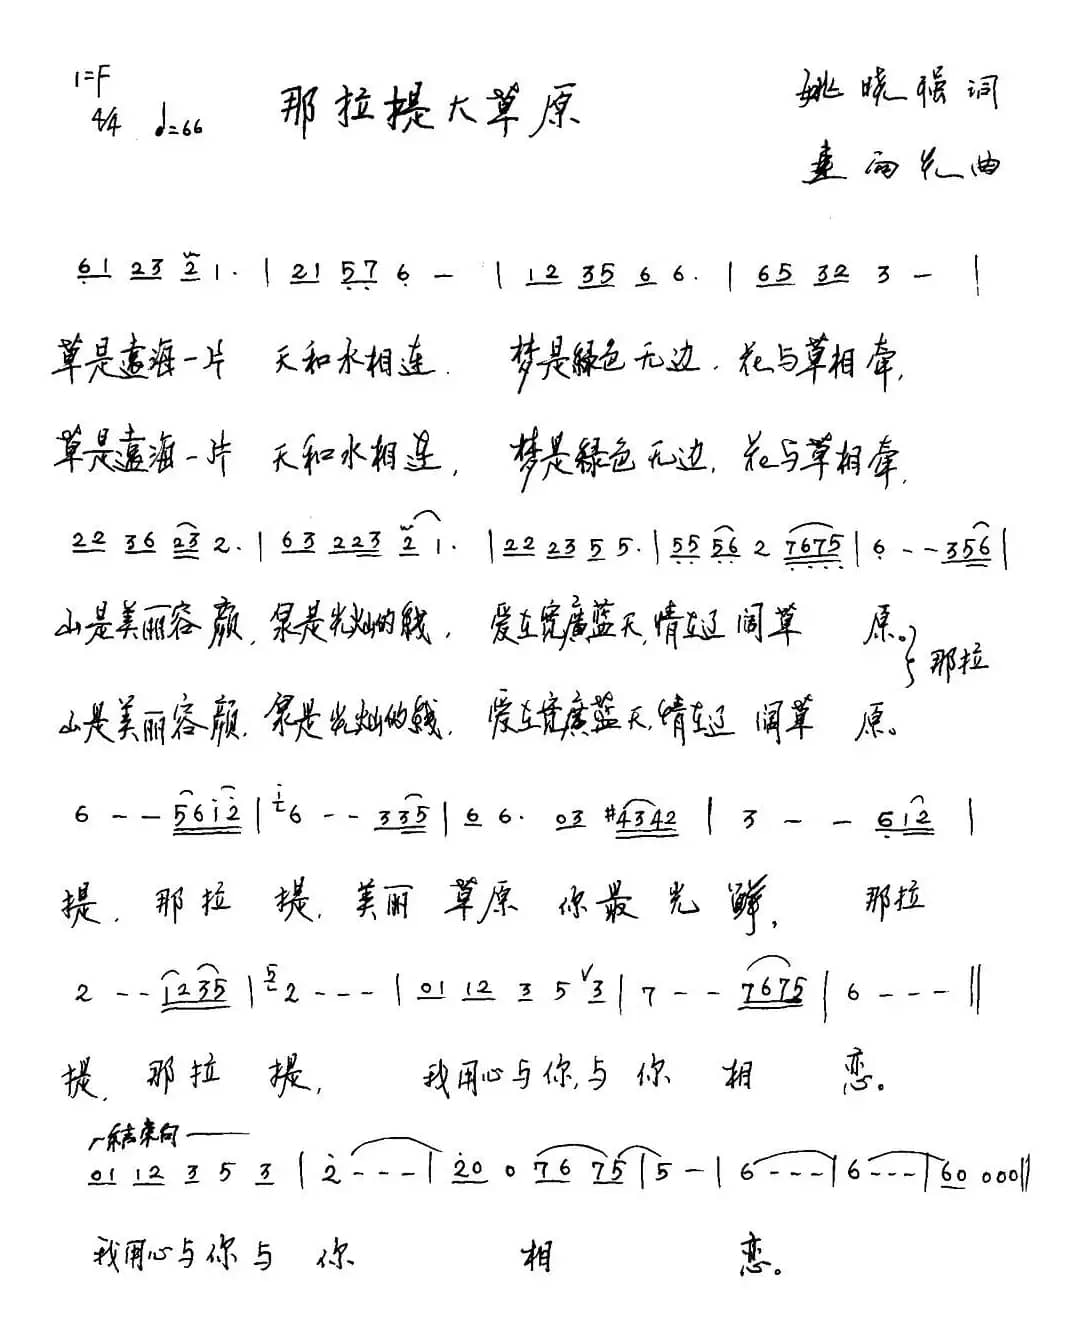 1=F
4/4 ♩=66 那拉提大草原 姚晓强词
雨 曲
61 23 2 1. | 21 57 6 - | 12 35 6 6. | 65 32 3 - |
草是遠海一片 天和水相连. 梦是綠色无边. 花与草相牵,
草是遠海一片 天和水相连, 梦是綠色无边, 花与草相牵,
22 36 23 2. | 63 223 2 1. | 22 23 5 5. | 55 56 2 7675 | 6 - - 356 |
山是美丽容颜, 泉是光灿的錢, 爱在宽廣蓝天,情在辽阔草原。 那拉
山是美丽容颜, 泉是光灿的錢, 爱在宽廣蓝天,情在辽阔草原。
6 - - 5612 | i 6 - - 335 | 6 6. 03 #4342 | 3 - - 612 |
提, 那拉提, 美丽草原你最光鲜, 那拉
2 - - 1235 | 5 2 - - - | 01 12 3 5 ∨ 3 | 7 - - 7675 | 6 - - - ‖
提, 那拉提, 我用心与你,与你相恋。
结束句
01 12 3 5 3 | 2 - - - | 20 0 76 75 | 5 - | 6 - - - | 6 - - - | 60 000 ‖
我用心与你与你相恋。